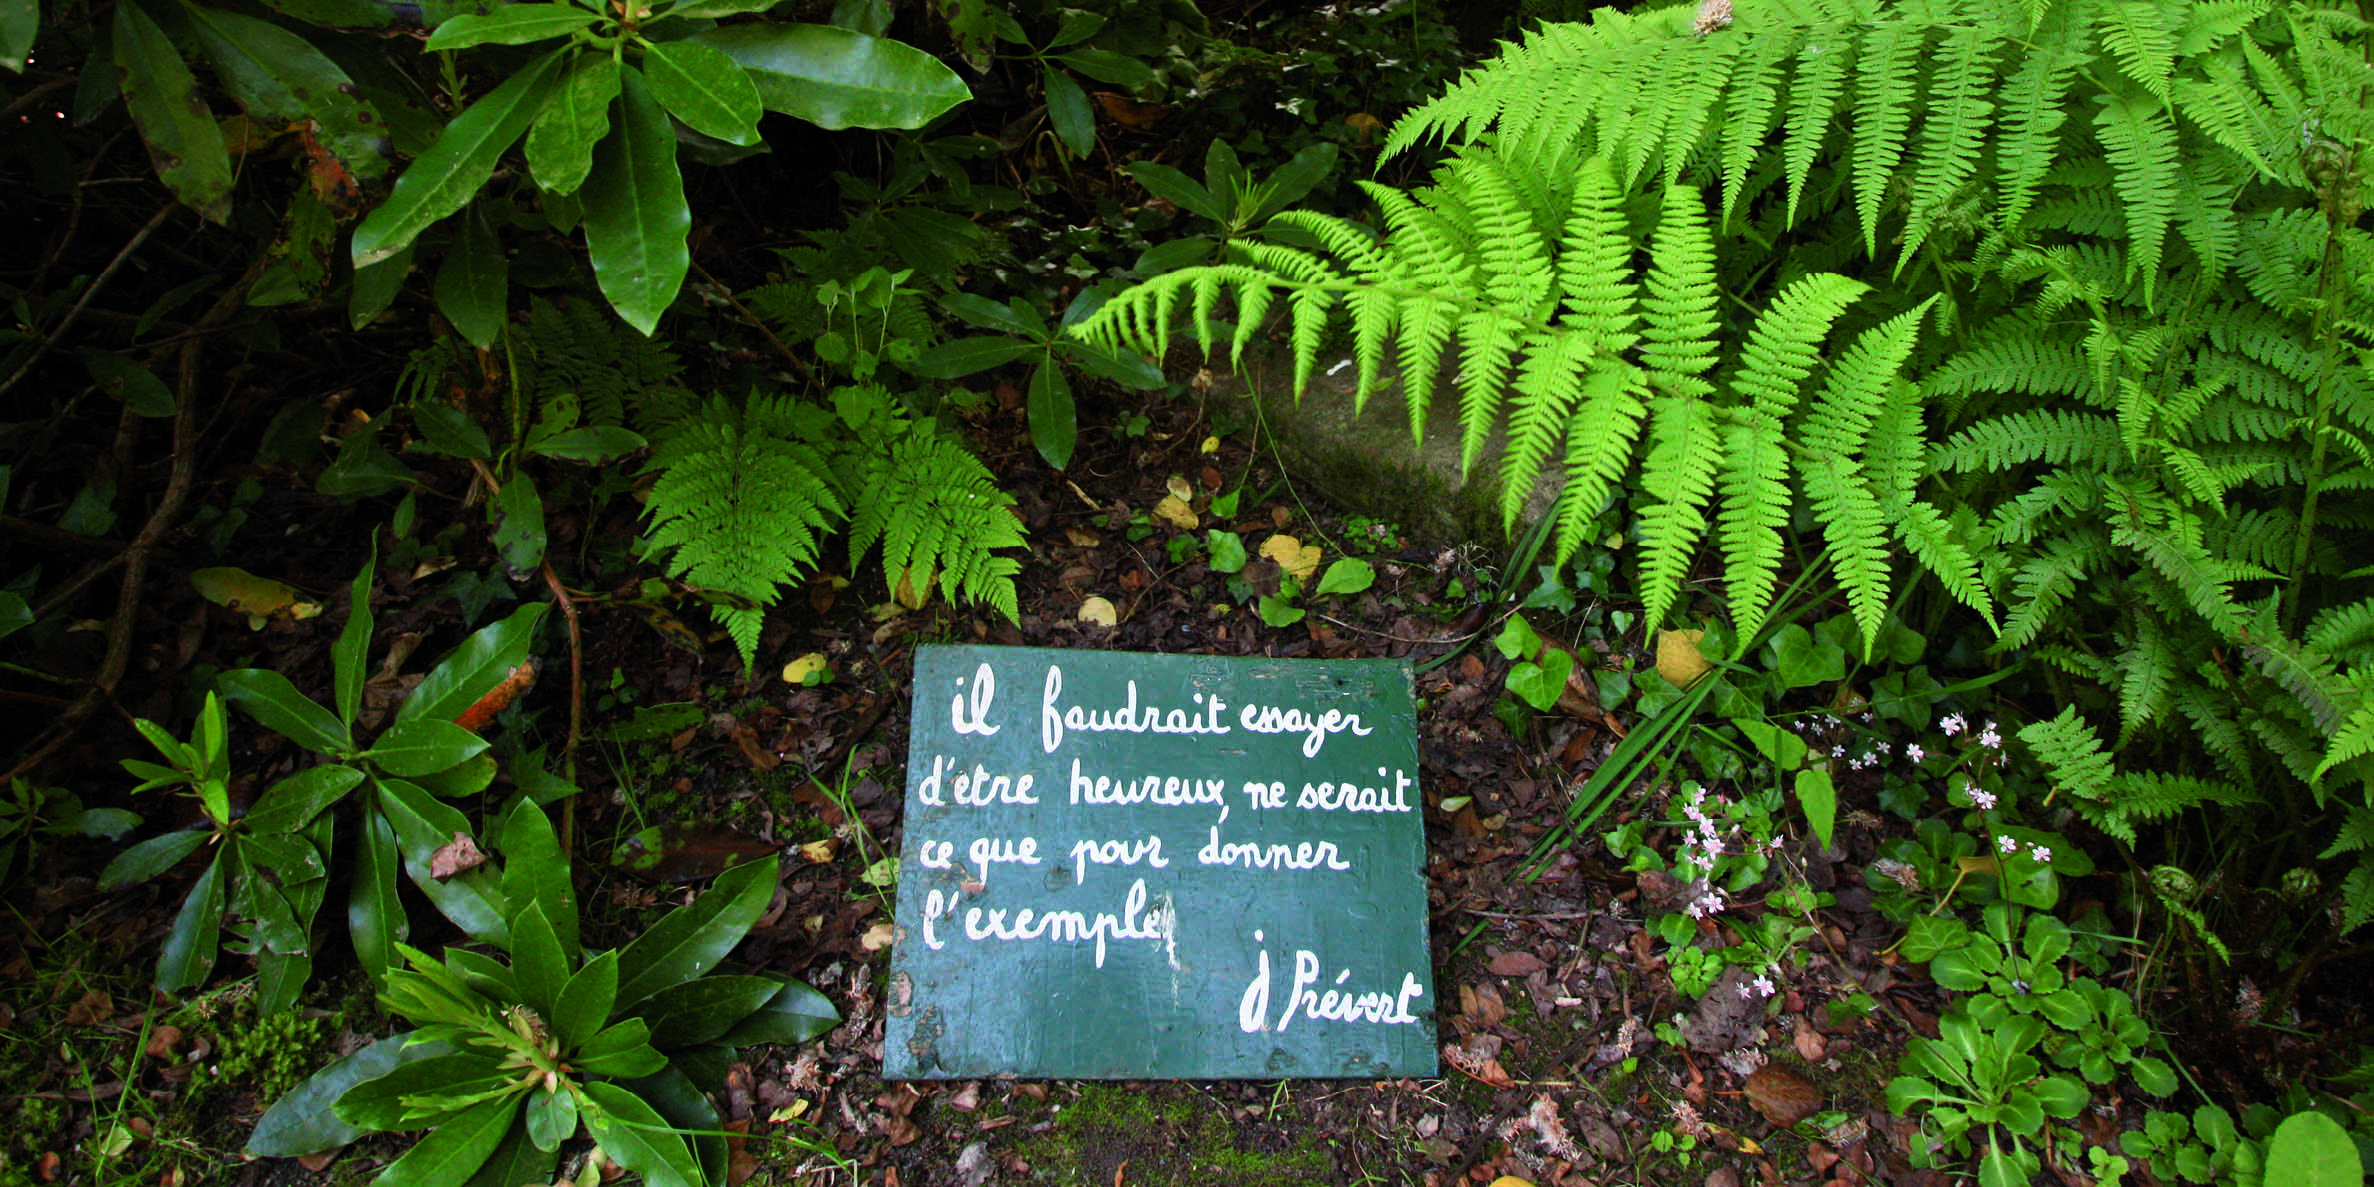 il faudrait essayer
d'être heureux, ne serait
ce que pour donner
l'exemple
j Prévert